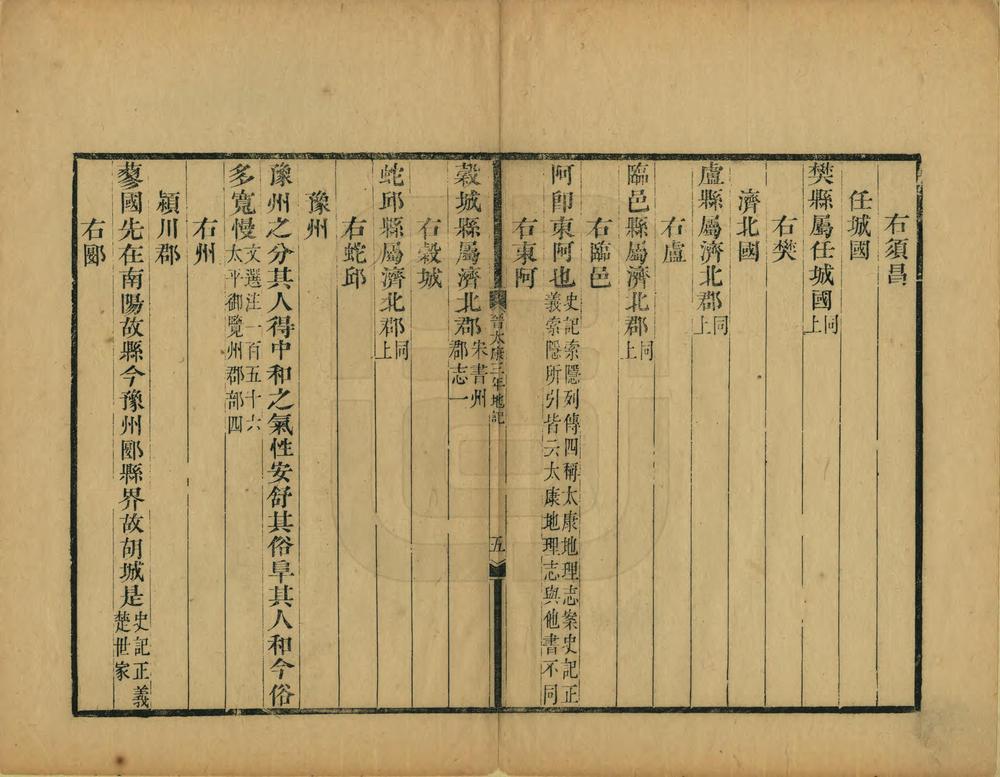 右須昌
任城國
樊縣屬任城國同上
右樊
濟北國
盧縣屬濟北郡同上
右盧
臨邑縣屬濟北郡同上
右臨邑
阿即東阿也史記索隱列傳四稱太康地理志案史記正義索隱所引皆云太康地理志與他書不同
右東阿
晉太康三年地記
五
穀城縣屬濟北郡宋書州郡志一
右穀城
蛇邱縣屬濟北郡同上
右蛇邱
豫州
豫州之分其人得中和之氣性安舒其俗阜其人和今俗
多寬慢文選注一百五十六太平御覽州郡部四
右州
潁川郡
蓼國先在南陽故縣今豫州郾縣界故胡城是史記正義楚世家
右郾